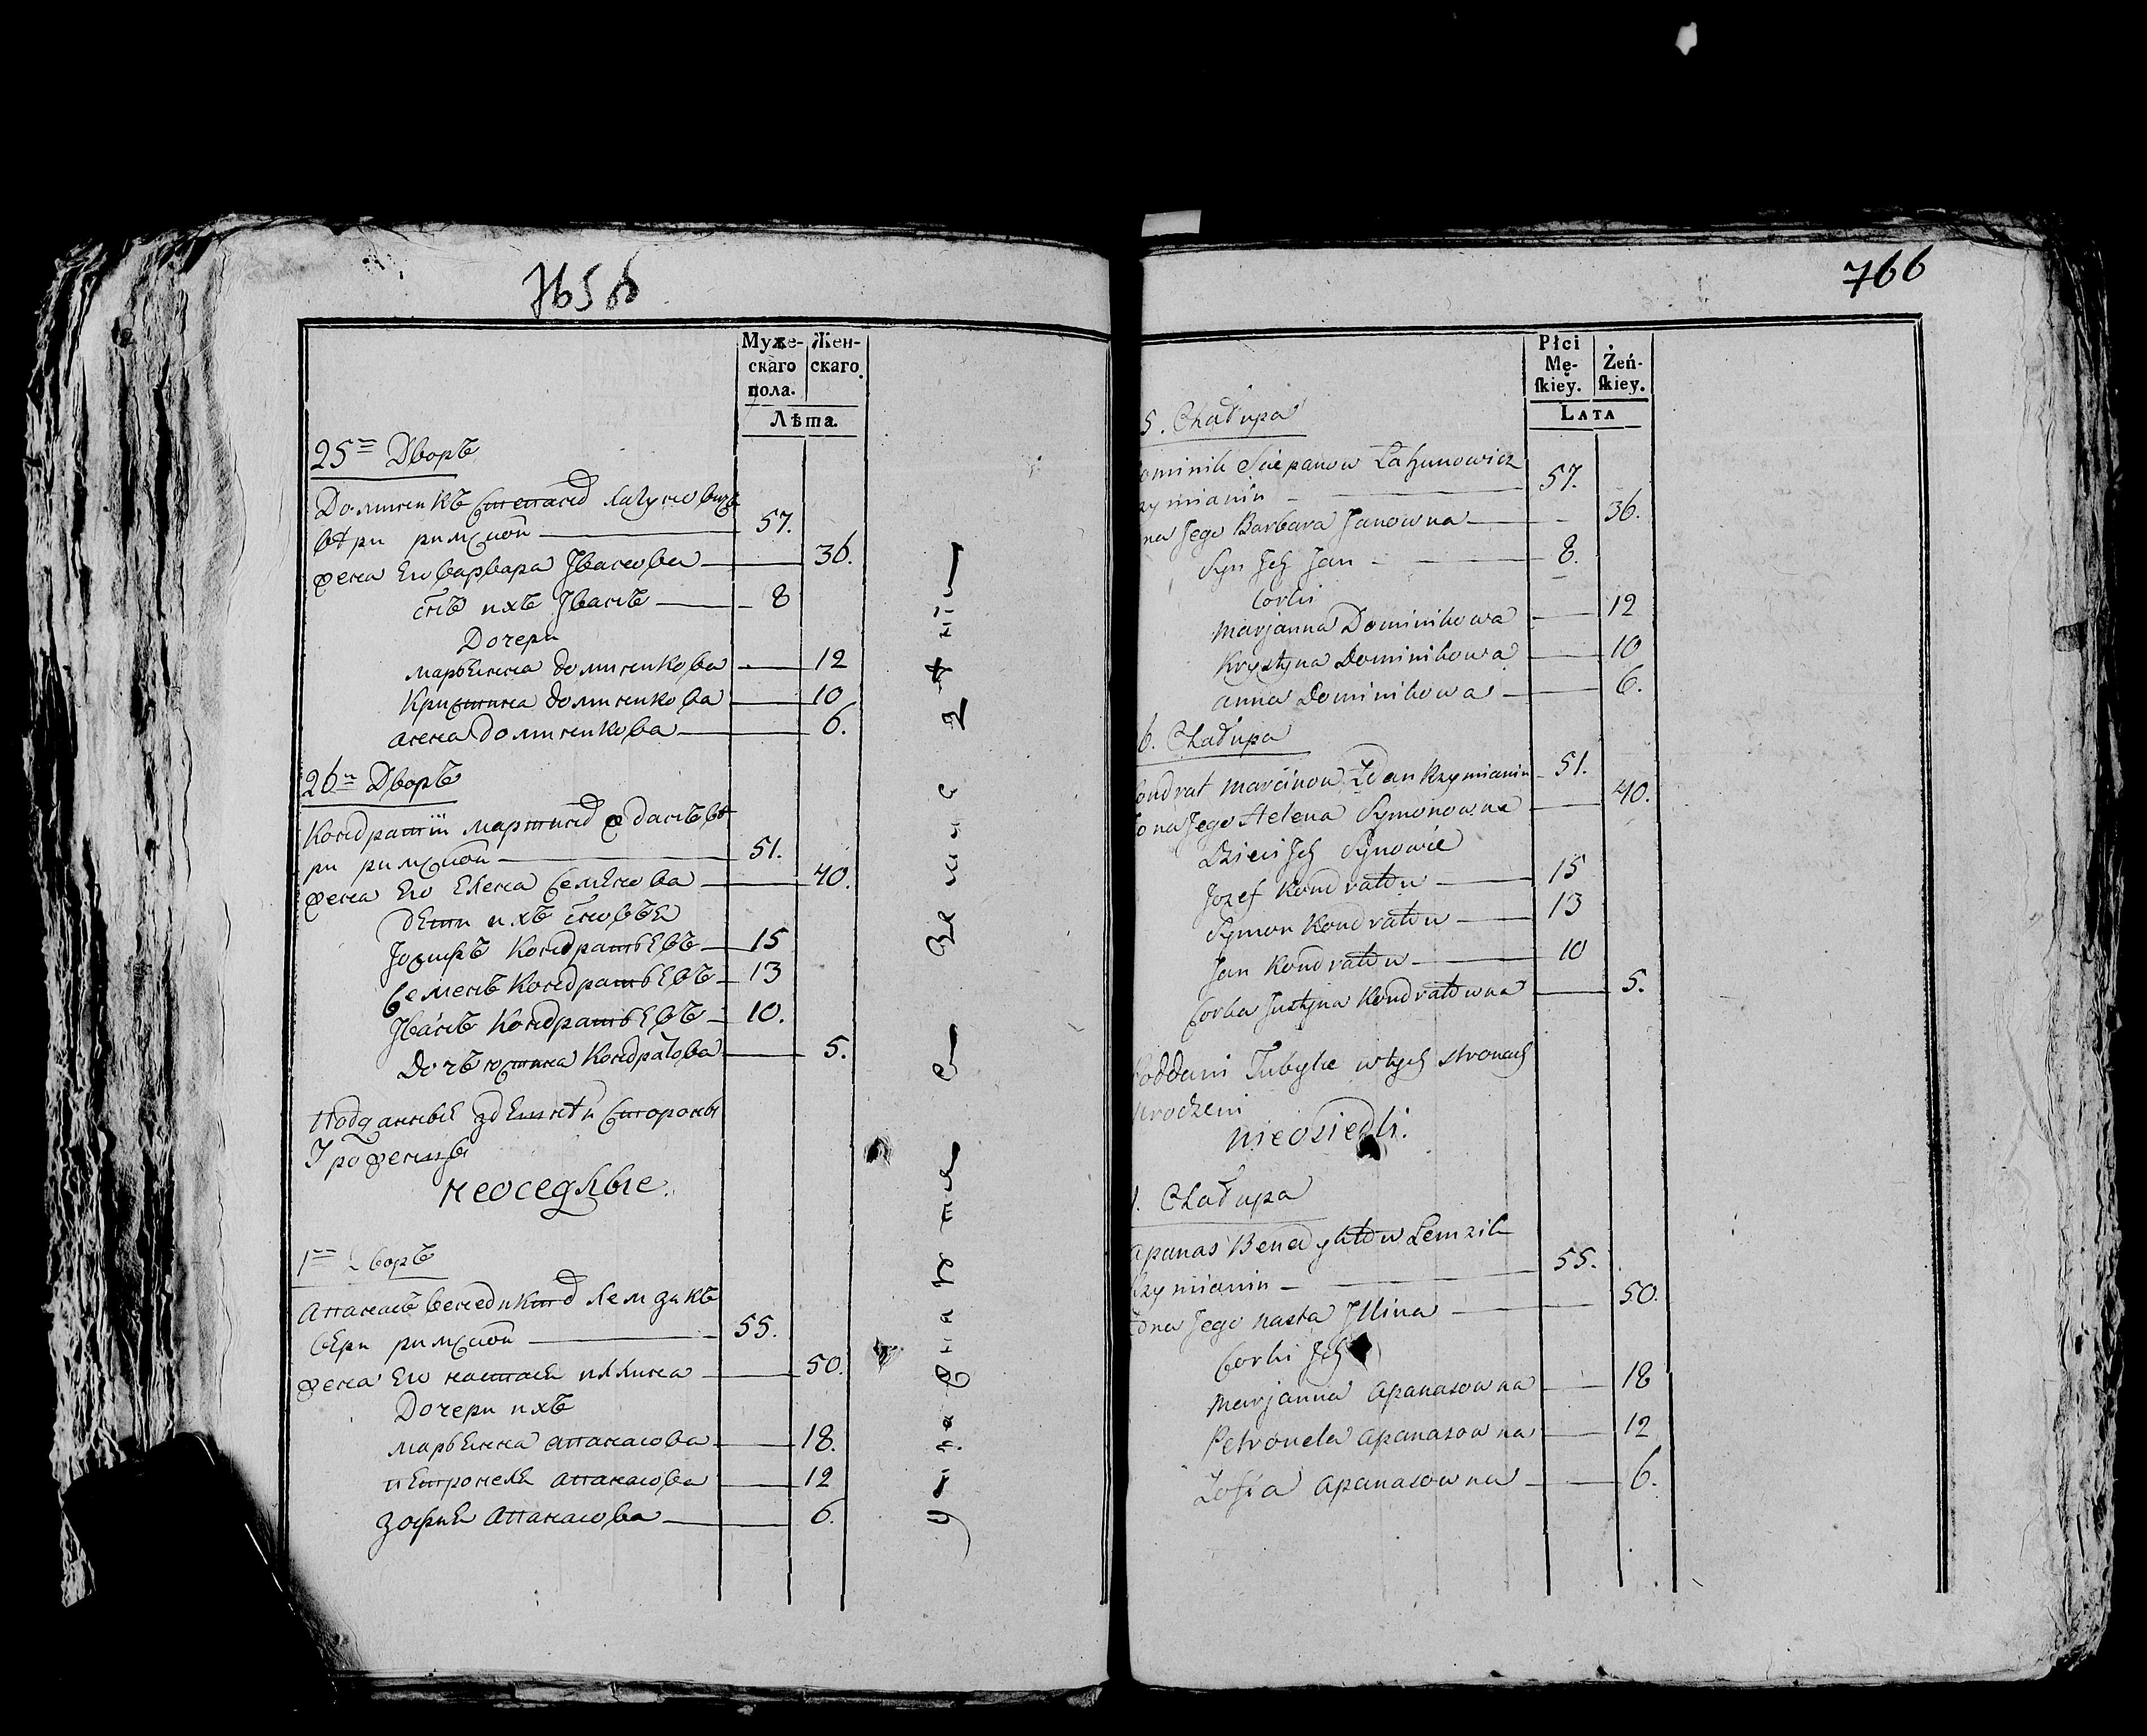 765 б
Муже-
скаго
пола.
Жен-
скаго.
Лѣта.
25 Дворъ
Доминикъ Степанов Лагуновичъ
вѣри римской — 57.
жена Его варвара Иванова — 36.
снъ ихъ Иванъ — 8
Дочери
марьенна доминикова — 12
Кристина доминикова — 10
анна доминикова — 6.
26 Дворъ
Кондратїй мартинов жданъ вѣ
ри римской — 51.
жена Его Елена Семенова — 40.
дети ихъ сновья
Иозифъ Кондратьевъ — 15
Семенъ Кондратьевъ — 13
Иванъ Кондратьевъ — 10.
Дочъ юстина Кондратова — 5.
Подданные здешнѣй Стороны
Урожен
неоседлые.
1 Дворъ
Апанасъ бенедиктов лемзикъ
вери римской — 55.
жена Его настасья иллина — 50.
Дочери ихъ
марьенна апанасова — 18.
петронеля апанасова — 12
зофия Апанасова — 6.
766
Płci
Mę-
skiey.
Żeń-
skiey.
LATA
5. Chałupa
ominik Sciepanow Łahunowicz
zymianin — 57.
na Jego Barbara Janowna — 36.
Syn Jch Jan — 8.
Corki
Marjanna Dominikowa — 12
Krystyna Dominikowa — 10
anna Dominikowa — 6.
6. Chałupa
ondrat Marcinow Zdan Rzymianin — 51.
ona Jego Helena Symonowna — 40.
Dzieci Jch Synowie
Jozef Kondratow — 15
Symon Kondratow — 13
Jan Kondratow — 10
Corka Justyna Kondratowna — 5.
Poddani Tubylce w tych stronach
urodzeni
nieosiedli.
1. Chałupa
apanas Benedyktow Lemzik
Rzymianin — 55.
Żona Jego Nasta Jllina — 50.
Corki Jch
Marjanna apanasowna — 18
Petronela apanasowna — 12
Zofia apanasowna — 6.